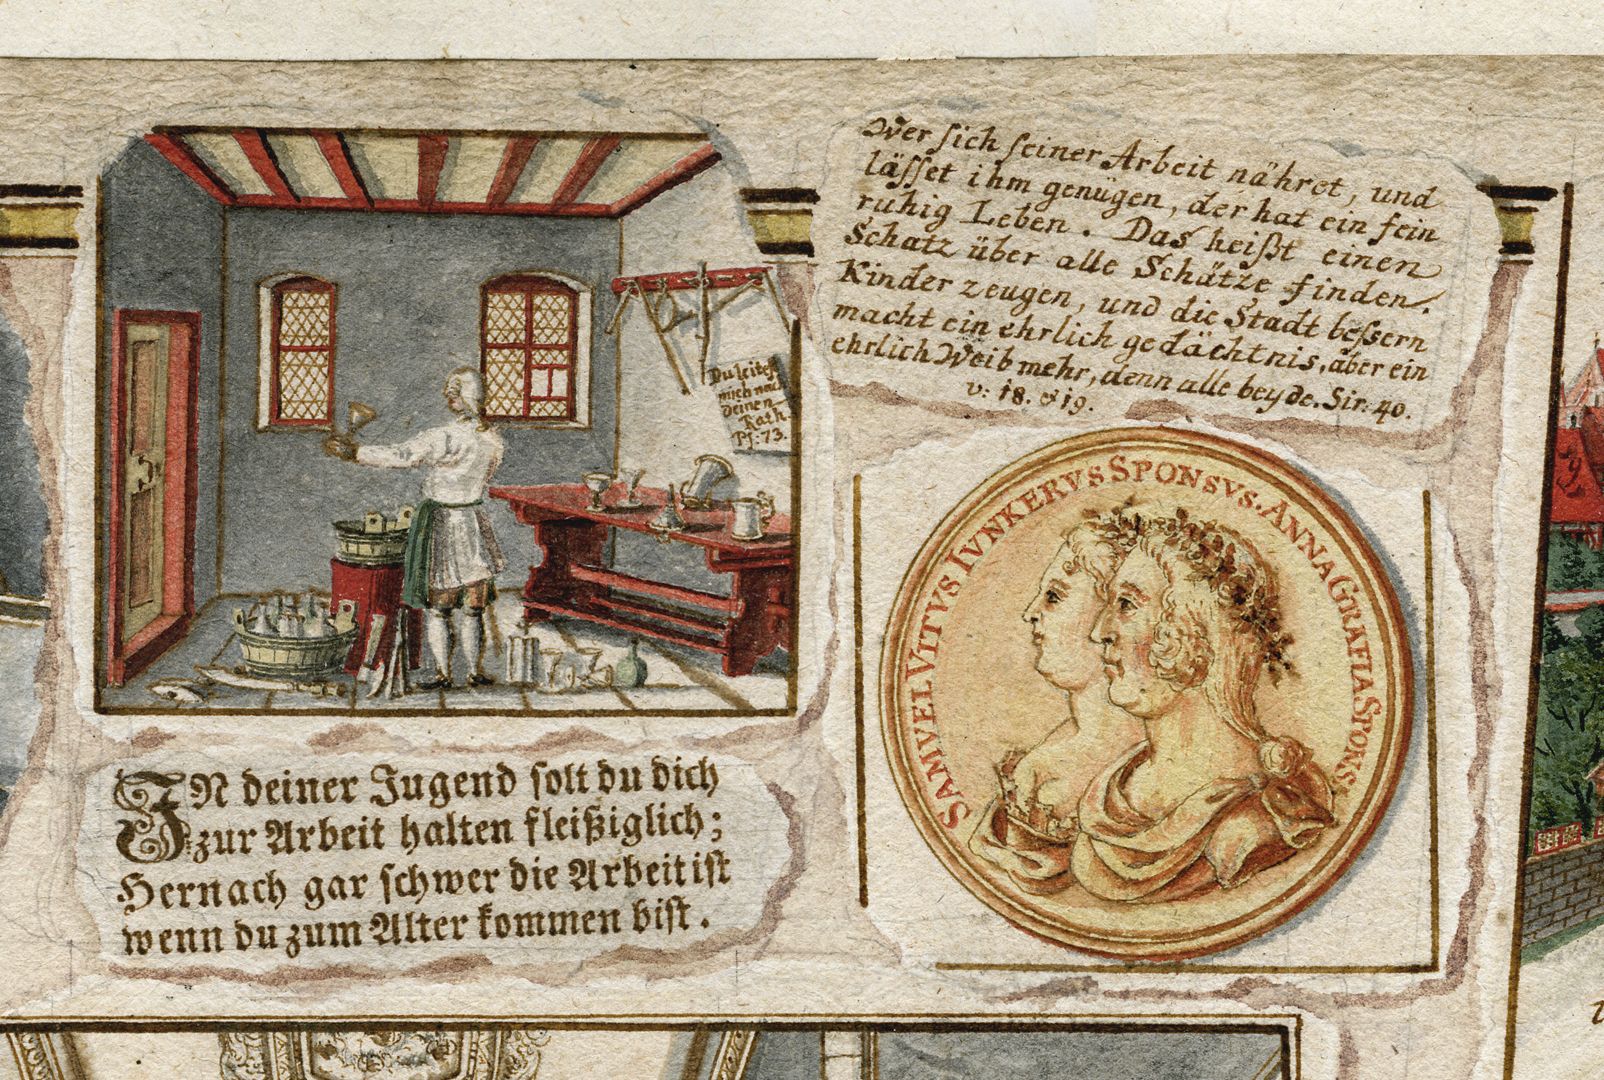 Wer sich seiner Arbeit nähret, und
lässet ihm genügen, der hat ein fein
ruhig Leben. Das heißt einen
Schatz über alle Schätze finden.
Kinder zeugen, und die Stadt bessern
macht ein ehrlich gedächtnis, aber ein
ehrlich Weib mehr, denn alle beyde. Sir: 40.
v: 18. & 19.
Du leitest
mich nach
deinen
Rath.
Ps: 73.
SAMVEL VITVS IVNKERVS SPONSVS. ANNA GRAFIA SPONS.
IN deiner Jugend solt du dich
zur Arbeit halten fleißiglich;
Hernach gar schwer die Arbeit ist
wenn du zum Alter kommen bist.